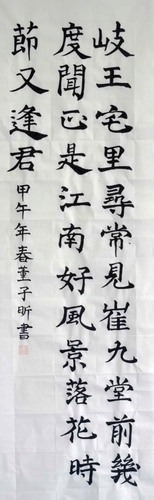 岐王宅里尋常見崔九堂前幾
度聞正是江南好風景落花時
節又逢君
甲午年春董子昕書